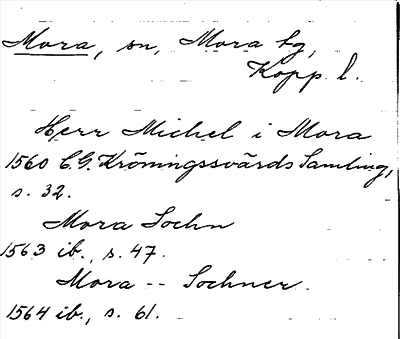 Mora, sn, Mora tg,
Kopp. l.
Herr Michel i Mora
1560 C.G. Kröningssvärds Samling,
s. 32.
Mora Sochn
1563 ib., s. 47.
Mora -- Sochner.
1564 ib., s. 61.